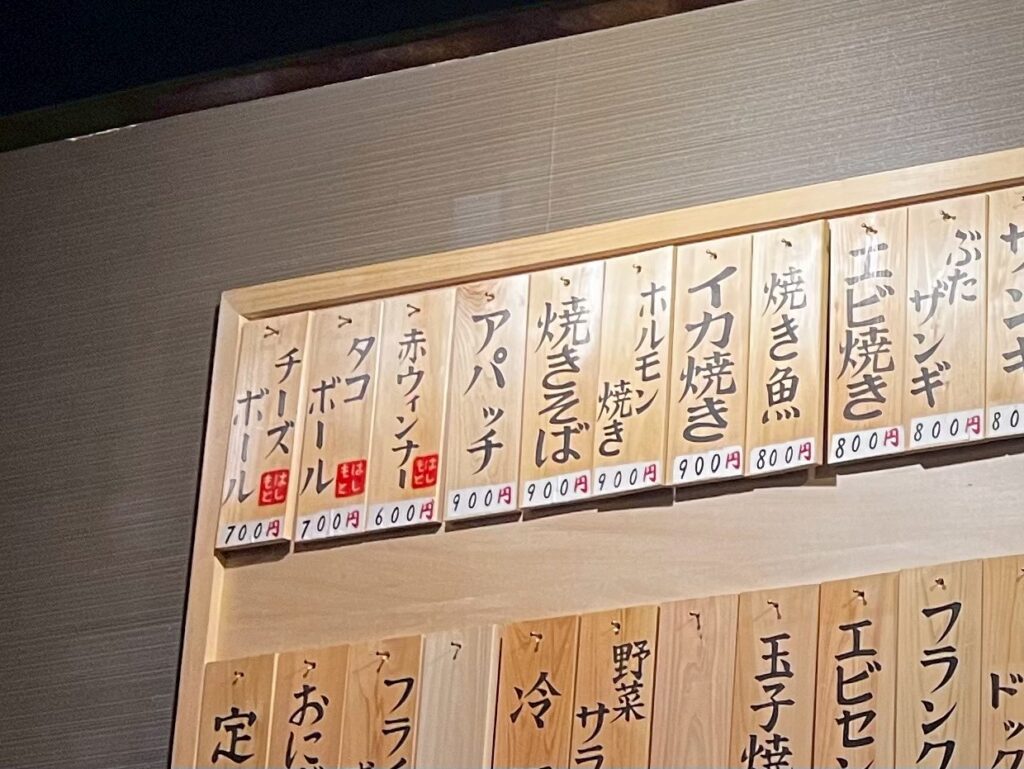 サンギ
80
ぶた
ザンギ
800円
エビ焼き
800円
焼き魚
800円
イカ焼き
900円
ホルモン
焼き
900円
焼きそば
900円
アパッチ
900円
赤ウィンナー
はし
もと
600円
タコ
ボール
はし
もと
700円
チーズ
ボール
はし
もと
700円
ドック
フランク
エビセン
玉子焼
野菜
サラ
冷
フライ
おに
定